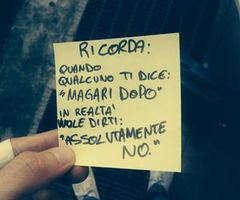 RICORDA:
QUANDO
QUALCUNO TI DICE:
"MAGARI DOPO"
IN REALTÀ
VUOLE DIRTI:
"ASSOLUTAMENTE
NO."